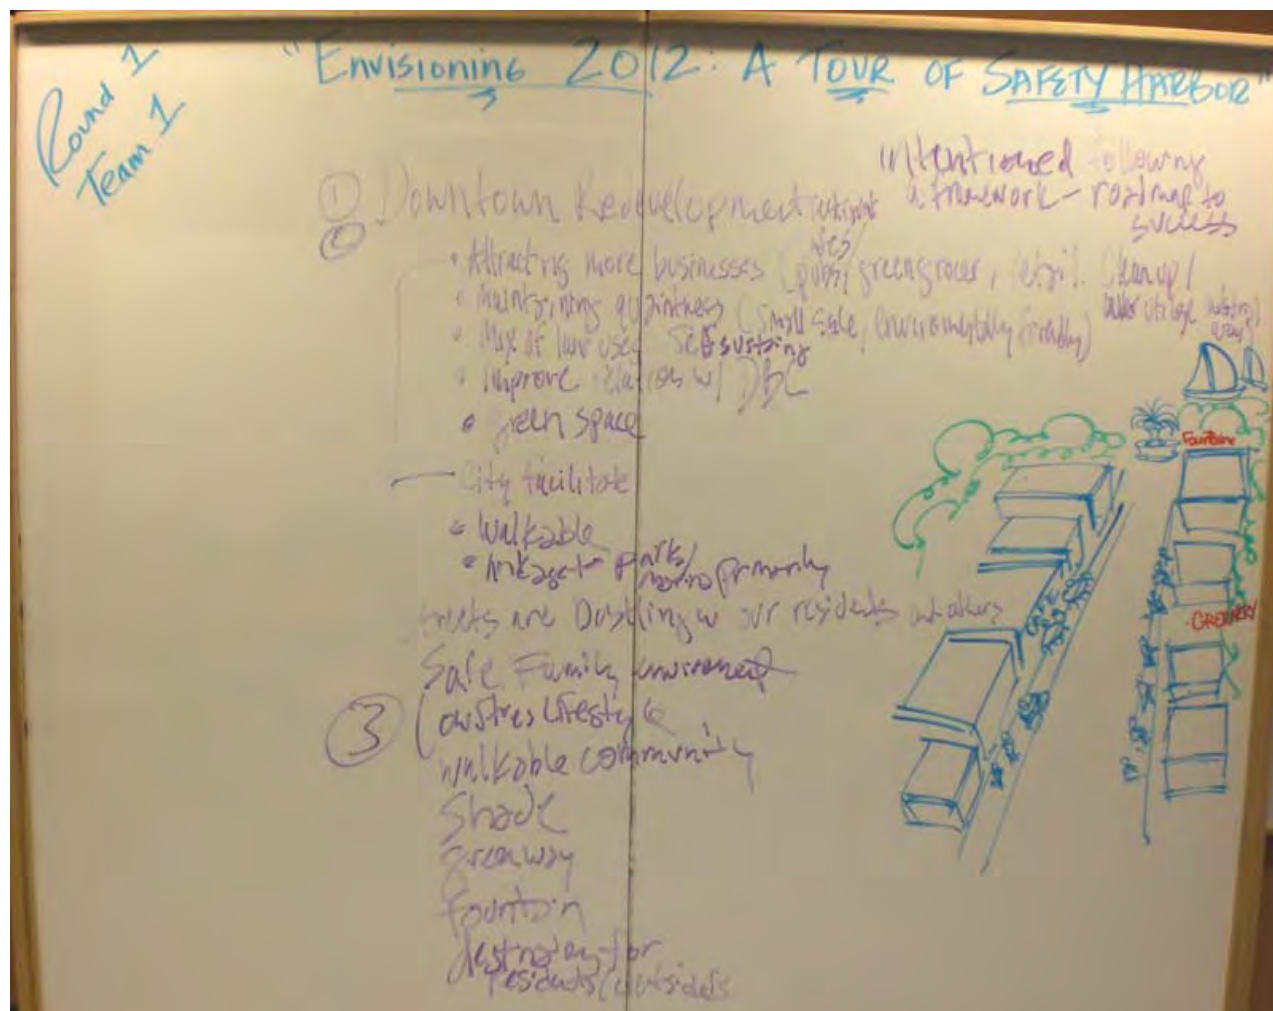 Round 1
Team 1
"Envisioning 2012: A Tour of Safety Harbor"
intentioned following
a framework - roadmap to
success
① Downtown Redevelopment
②
• Attracting more businesses (pubs/greengrocer, retail. Clean up/
• Maintaining quaintness (Small Scale, environmentally friendly)
• Mix of uses Self sustaining
• improve relations w/ DBC
• green space
City facilitate
• Walkable
• parks/
marina primarily
streets are Bustling w our residents and others
Safe Family enviroment
③ Lifestyle
walkable community
Shade
greenway
fountain
for
residents/outsiders
Fountain
CAFE
GREENERY